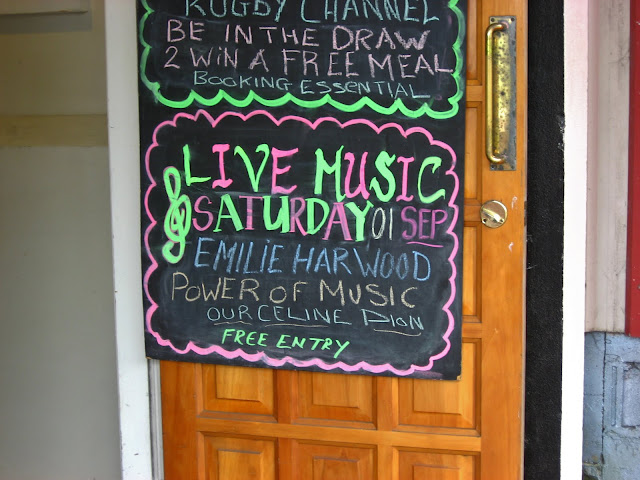 RUGBY CHANNEL
BE IN THE DRAW
2 WIN A FREE MEAL
BOOKING ESSENTIAL
LIVE MUSIC
SATURDAY 01 SEP
EMILIE HARWOOD
POWER OF MUSIC
OUR CELINE DION
FREE ENTRY